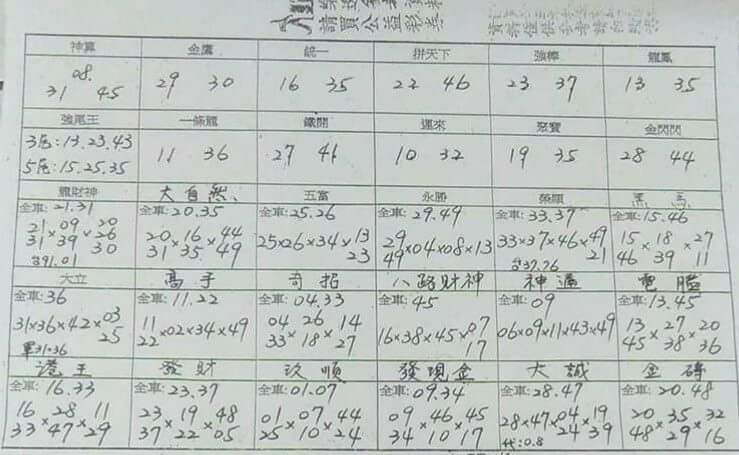 請買公益彩券
神算 金鷹 統一 拼天下 強棒 龍鳳
08.
31 45 29 30 16 35 22 46 23 37 13 35
強尾王 一條龍 鐵開 運來 聚寶 金閃閃
3尾:13.23.43
5尾:15.25.35
11 36 27 41 10 32 19 35 28 44
龍財神 大自然 五富 永勝 榮順 黑馬
全車:21.31 全車:20.35 全車:25.26 全車:29.49 全車:33.37 全車:15.46
21×09×20
31 39 26
30
20×16×44
31 35 49
25×26×34×13
23
29×04×08×13
49
33×37×46×49
21
15×18×27
46 39 11
大立 高手 奇招 八路財神 神通 電腦
全車:36 全車:11.22 全車:04.33 全車:45 全車:09 全車:13.45
31×36×42×03
25
單31×36
11×02×34×49
22
04 26 14
33×18×27
16×38×45×07
17
06×09×11×43×49
13×27×20
45 38 36
港王 發財 玖順 發現金 大誠 金磚
全車:16.33 全車:23.37 全車:01.07 全車:09.34 全車:28.47 全車:20.48
16×28×11
33 47 29
23×19×48
37 22 05
01×07×44
25 10 24
09×46×45
34 10 17
28×47×04×19
24 39
代:0.8
20×35×32
48 29 16